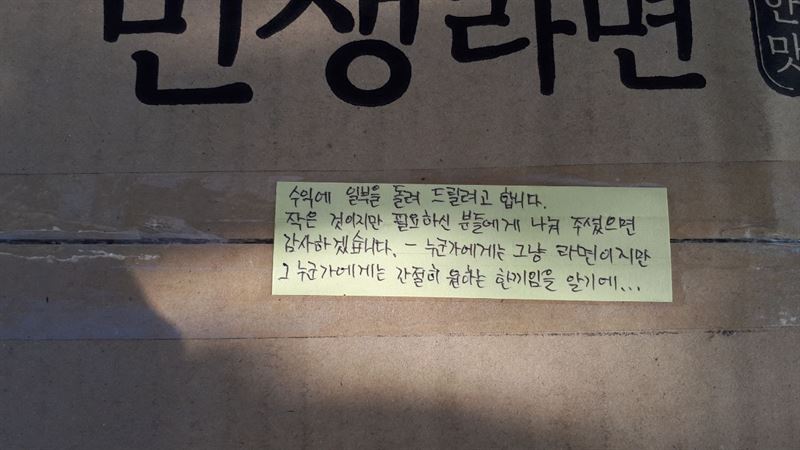 민생라면
한
맛
수익에 일부를 돌려 드릴려고 합니다.
작은 것이지만 필요하신 분들에게 나눠 주셨으면
감사하겠습니다. - 누군가에게는 그냥 라면이지만
그 누군가에게는 간절히 원하는 한끼임을 알기에...